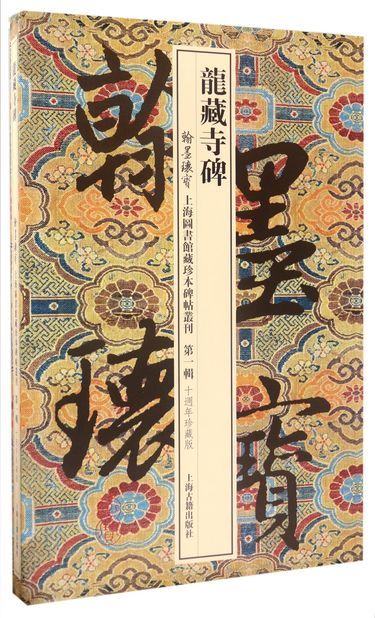 龍藏寺碑
翰墨瓌寳
上海圖書館藏珍本碑帖叢刊 第一輯
十週年珍藏版
上海古籍出版社
翰墨
瓌寳